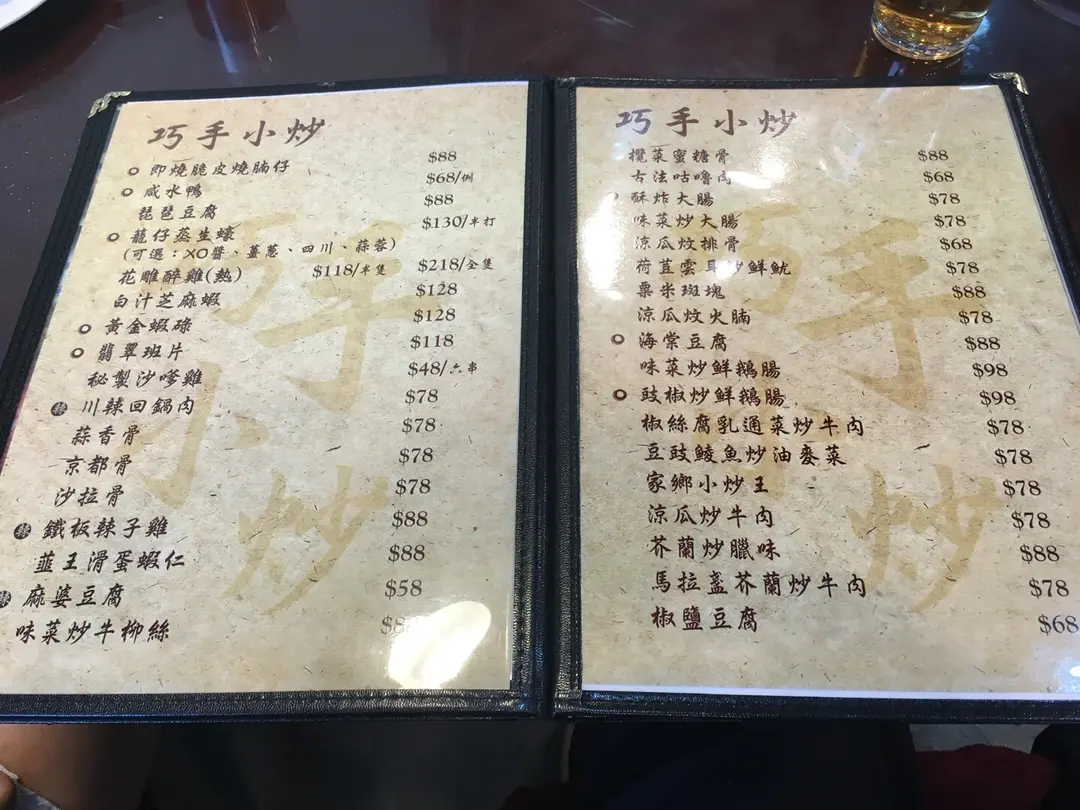 巧手小炒
即燒脆皮燒腩仔 $88
咸水鴨 $68/例
琵琶豆腐 $88
籠仔蒸生蠔 $130/半打
(可選：XO醬、薑葱、四川、蒜蓉)
花雕醉雞(熱) $118/半隻 $218/全隻
白汁芝麻蝦 $128
黃金蝦碌 $128
翡翠班片 $118
秘製沙嗲雞 $48/六串
川辣回鍋肉 $78
蒜香骨 $78
京都骨 $78
沙拉骨 $78
鐵板辣子雞 $88
韮王滑蛋蝦仁 $88
麻婆豆腐 $58
味菜炒牛柳絲
巧手小炒
欖菜蜜糖骨 $88
古法咕嚕肉 $68
酥炸大腸 $78
味菜炒大腸 $78
涼瓜炆排骨 $68
荷荳雲耳炒鮮魷 $78
粟米斑塊 $88
涼瓜炆火腩 $78
海棠豆腐 $88
味菜炒鮮鵝腸 $98
豉椒炒鮮鵝腸 $98
椒絲腐乳通菜炒牛肉 $78
豆豉鯪魚炒油麥菜 $78
家鄉小炒王 $78
涼瓜炒牛肉 $78
芥蘭炒臘味 $88
馬拉盞芥蘭炒牛肉 $78
椒鹽豆腐 $68
巧手小炒
巧手小炒